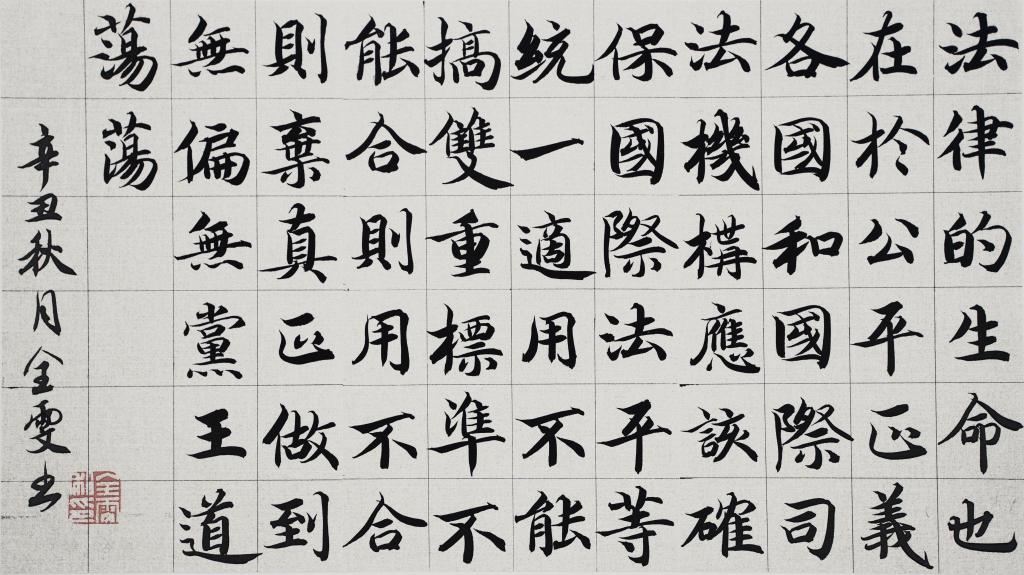 法律的生命也
在於公平正義
各國和國際司
法機構應該確
保國際法平等
統一適用不能
搞雙重標準不
能合則用不合
則棄真正做到
無偏無黨王道
蕩蕩
辛丑秋月全雯书